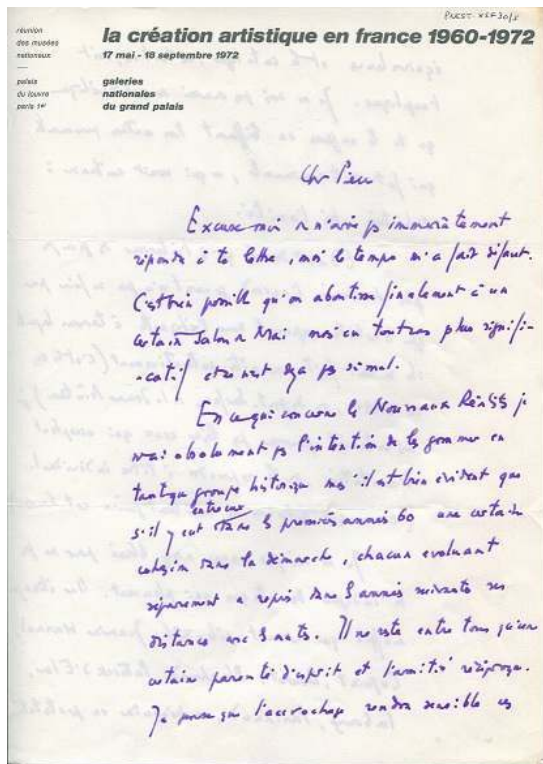 PREST. XSF30/8
réunion
des musées
nationaux
palais
du louvre
paris 1er
la création artistique en france 1960-1972
17 mai - 18 septembre 1972
galeries
nationales
du grand palais
Cher Pierre
Excuse moi de n'avoir pas immédiatement
répondu à ta lettre, mais le temps m'a fait défaut.
C'est bien possible qu'on aboutisse finalement à un
certain Salon de Mai mais en tout cas plus signifi-
-catif et ce n'est déjà pas si mal.
En ce qui concerne les Nouveaux Réalistes je
n'ai absolument pas l'intention de les gommer en
tant que groupe historique mais il est bien évident que
s'il y eut entre eux dans les premières années 60 une certaine
cohésion dans la démarche, chacun évoluant
séparément a repris dans les années suivantes ses
distances avec les autres. Il ne reste entre tous qu'une
certaine parenté d'esprit et l'amitié réciproque.
Je pense que l'accrochage rendra sensible ces